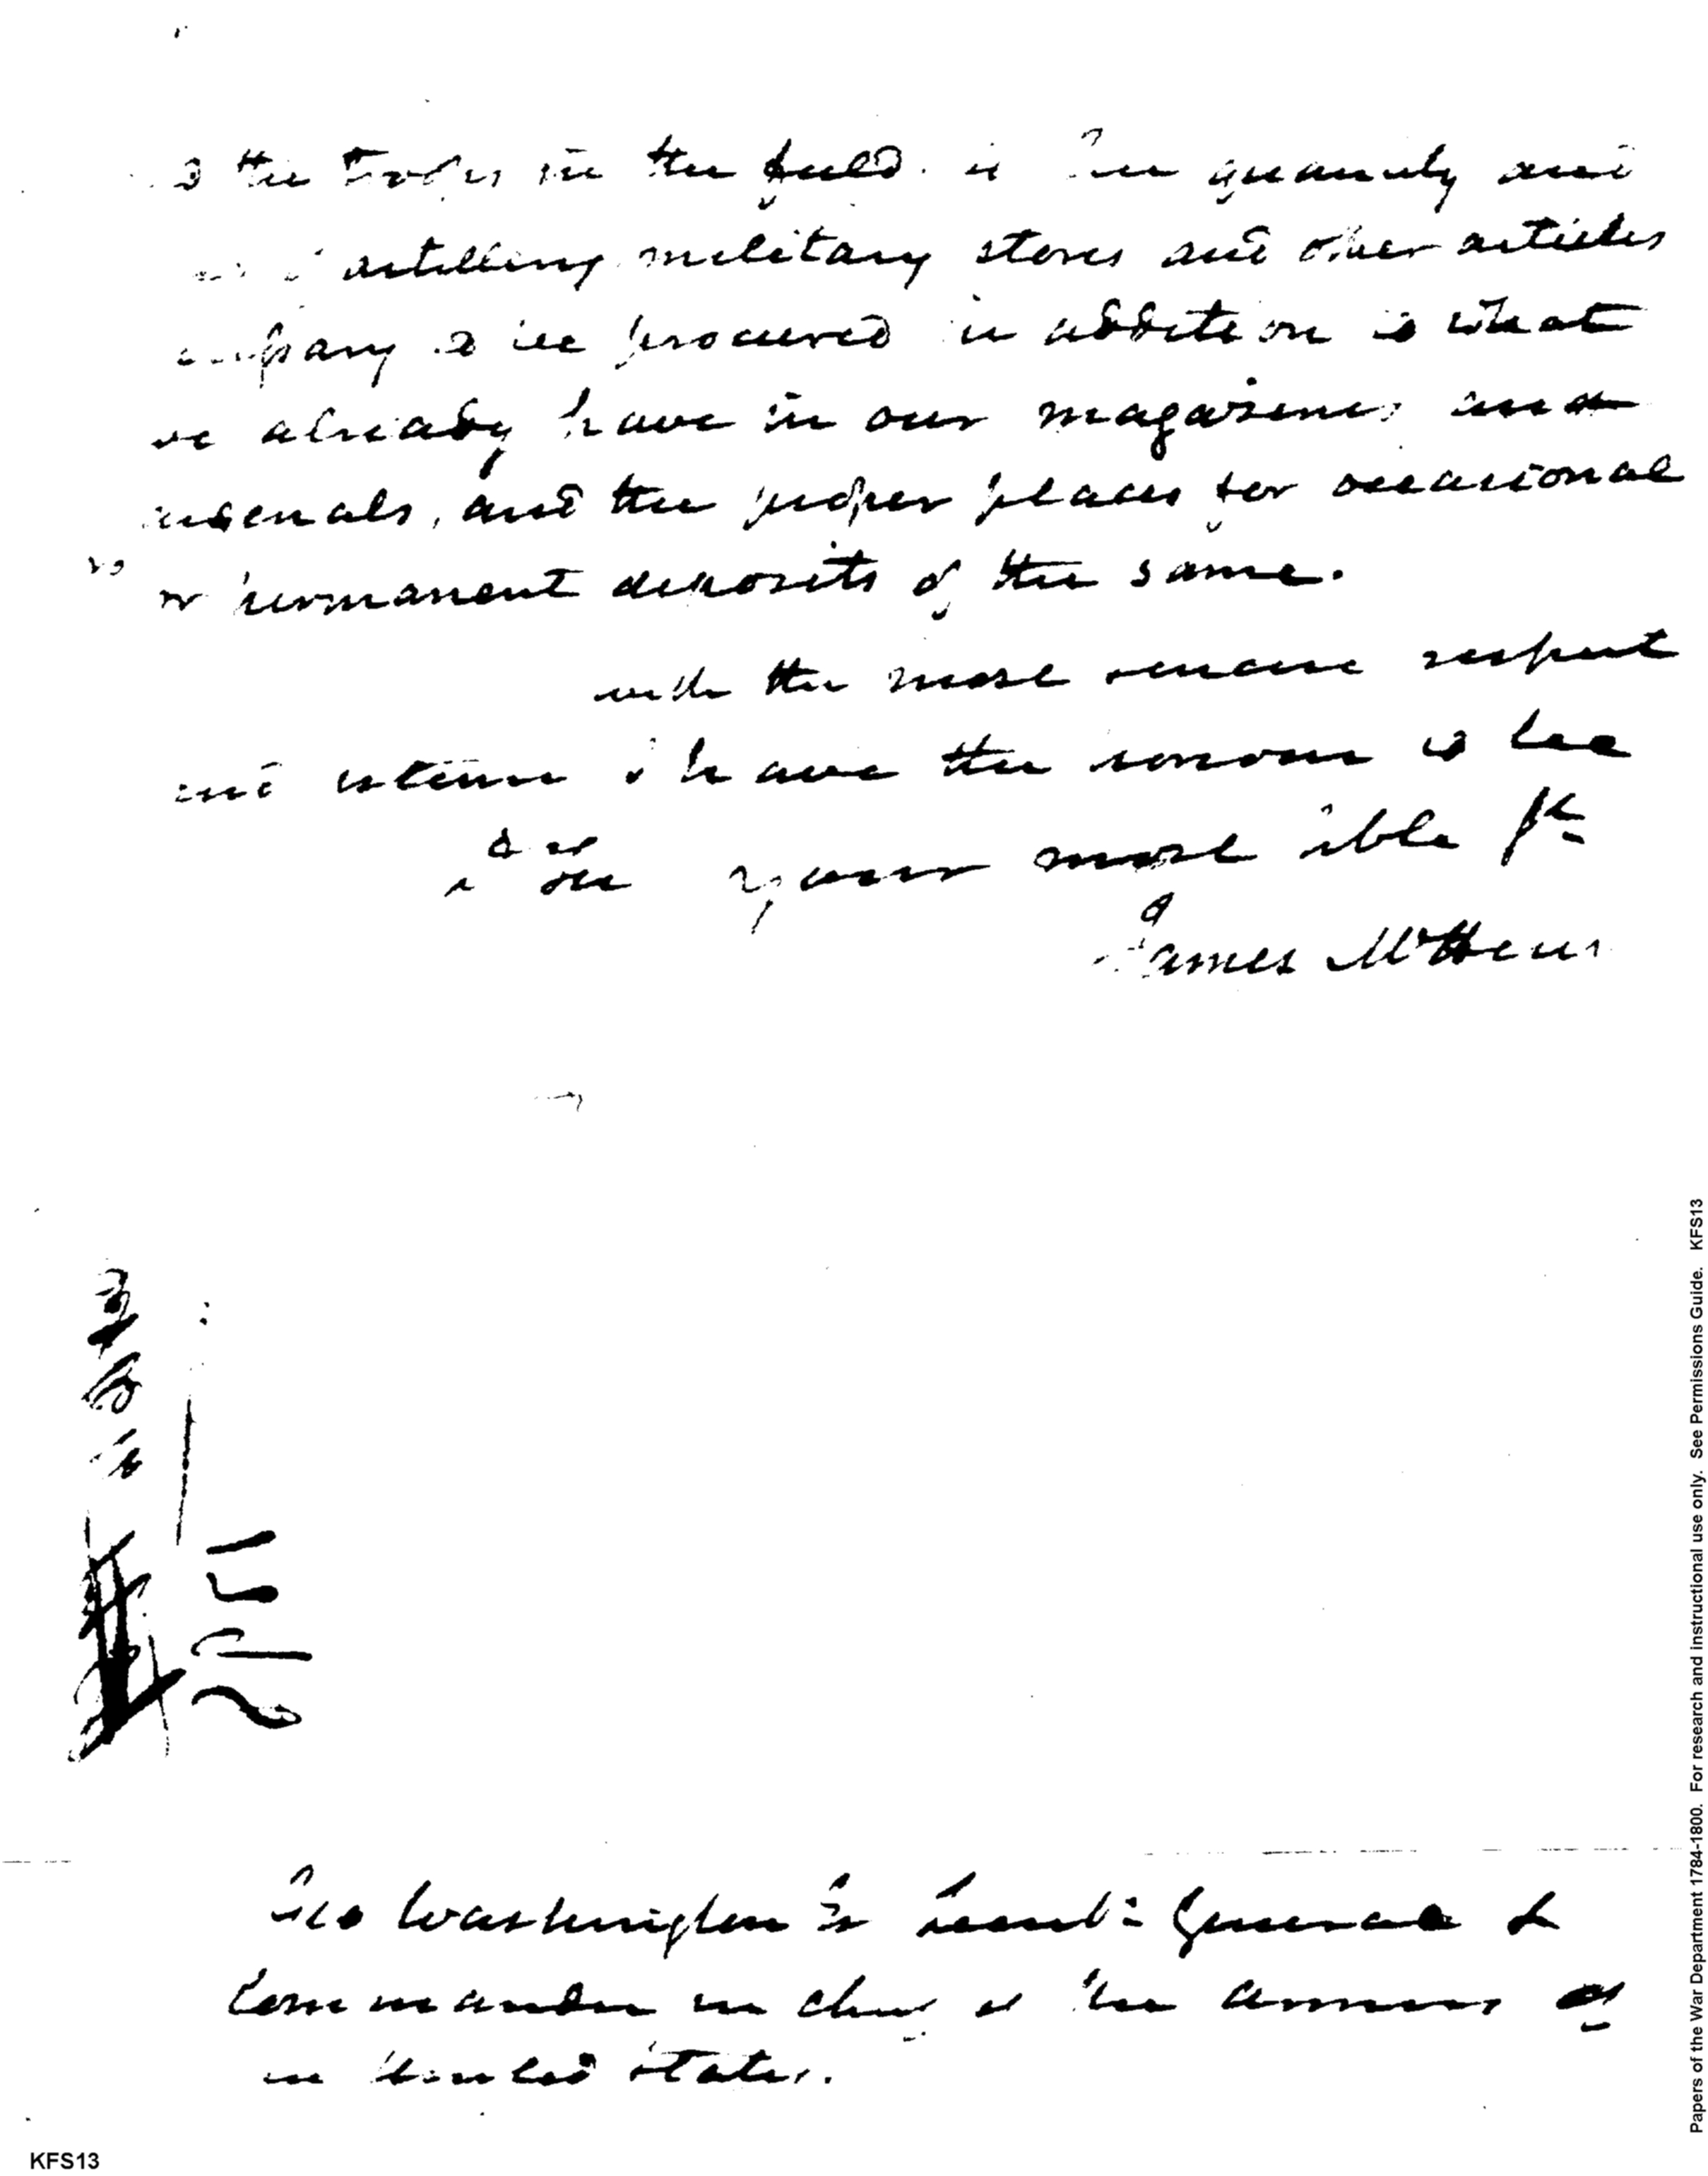 the troops in the field. of the quantity and
artillery military stores and other articles
to be procured in addition to what
we already have in our magazines and
arsenals, and the proper places for occasional
or permanent deposits of the same.
with the most sincere respect
and esteem I have the honour to be
Sir your most oble St
James McHenry
Geo Washington Lieut: General &
Commander in chief of the armies of
the United States.
Papers of the War Department 1784-1800. For research and instructional use only. See Permissions Guide. KFS13
KFS13